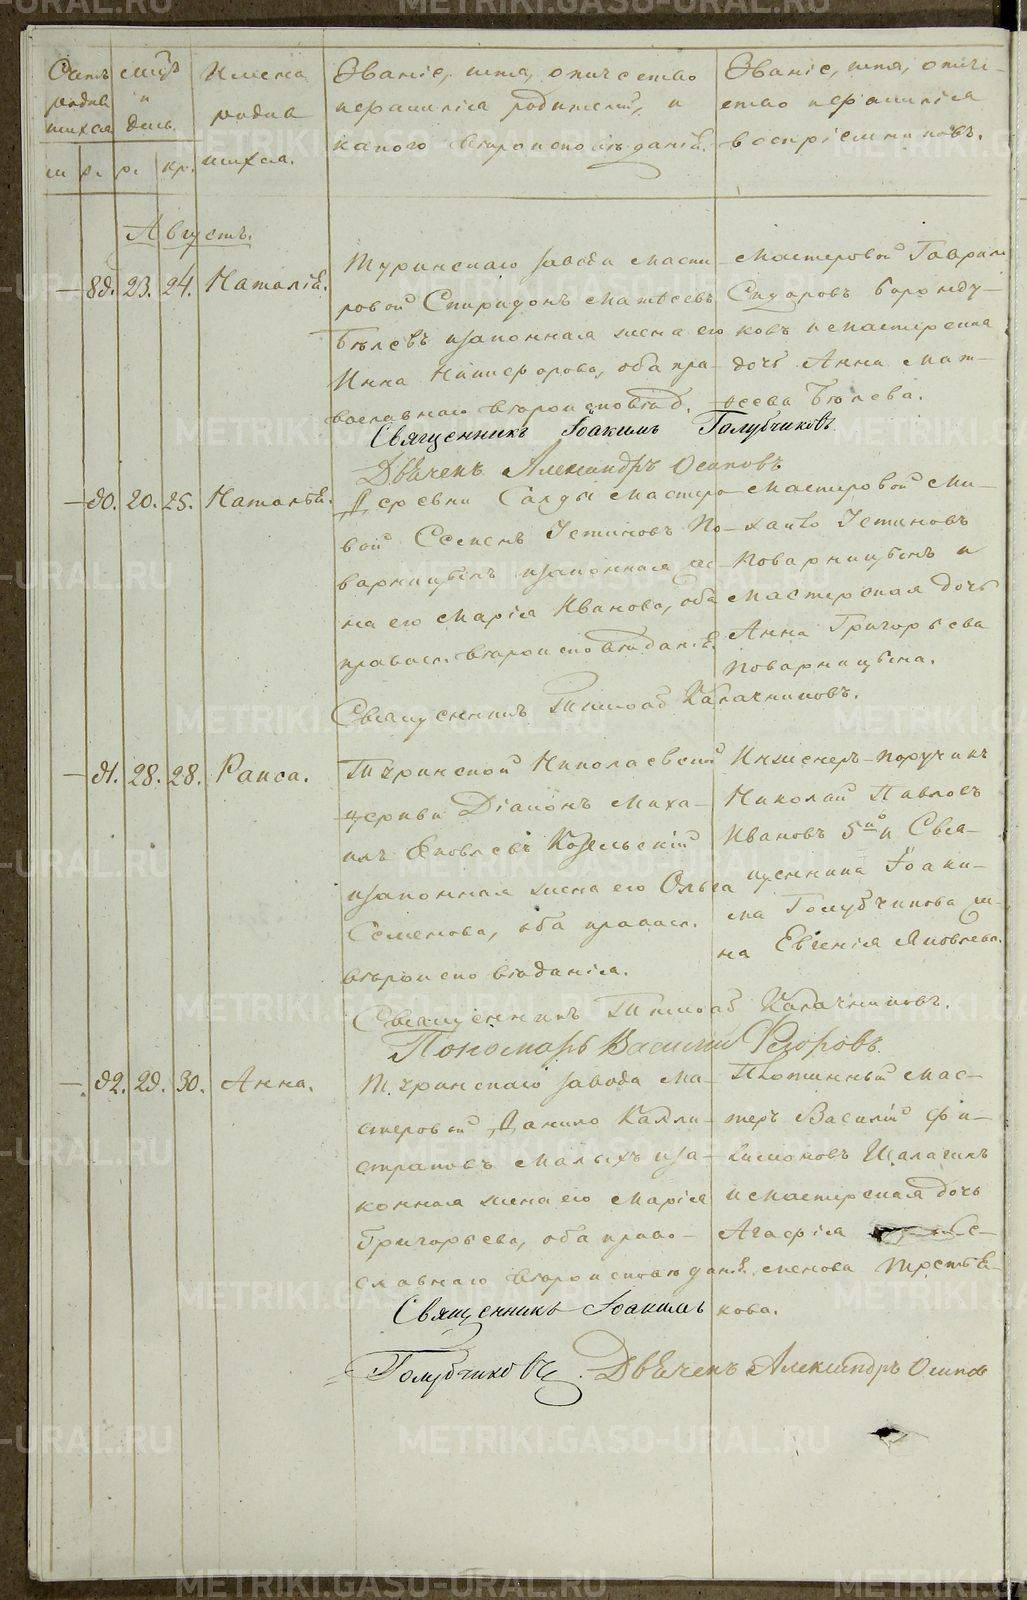 Счетъ родив шихся
м. р.
Мѣцъ и день.
р. кр.
Имена родив шихся.
Званіе, имя, отчество
и фамилія родителей, и
какого вѣроисповѣданія.
Званіе, имя, отче-
ство и фамилія
воспріемниковъ.
Августъ.
— 89. 23. 24. Наталія.
Туринскаго завода масте-
ровой Спиридонъ Матвѣевъ
Бѣлевъ и законная жена его
Инна Никифорова, оба пра-
вославнаго вѣроисповѣд.
Мастеровой Гаврило
Сидоровъ Боронду-
ковъ и мастерская
дочь Анна Мат-
вѣева Бѣлева.
Священникъ Іоакимъ Голубчиковъ
Дьячекъ Александръ Осиповъ
— 90. 20. 25. Наталія.
Деревни Салды мастеро-
вой Семенъ Устиновъ По-
варницынъ и законная же-
на его Марія Иванова, оба
правосл. вѣроисповѣданія.
Мастеровой Ми-
хайло Устиновъ
Поварницынъ и
мастерская дочь
Анна Григорьева
Поварницына.
Священникъ Тимофей Калачниковъ.
— 91. 28. 28. Раиса.
Туринской Николаевской
церкви Діаконъ Миха-
илъ Яковлевъ Козельскій
и законная жена его Ольга
Семенова, оба правосл.
вѣроисповѣданія.
Инженеръ-поручикъ
Николай Павловъ
Ивановъ 5й и Свя-
щенника Іоаки-
ма Голубчикова же-
на Евгенія Яковлева.
Священникъ Тимофей Калачниковъ.
Пономарь Василій Ѳедоровъ.
— 92. 29. 30. Анна.
Туринскаго завода ма-
стеровой Данило Калли-
стратовъ Малыхъ и за-
конная жена его Марія
Григорьева, оба право-
славнаго вѣроисповѣданія.
Плотинный мас-
теръ Василій Фи-
лимоновъ Шалагинъ
и мастерская дочь
Агафія Се-
менова Третья-
кова.
Священникъ Іоакимъ
Голубчиковъ. Дьячекъ Александръ Осиповъ
METRIKI.GASO-URAL.RU